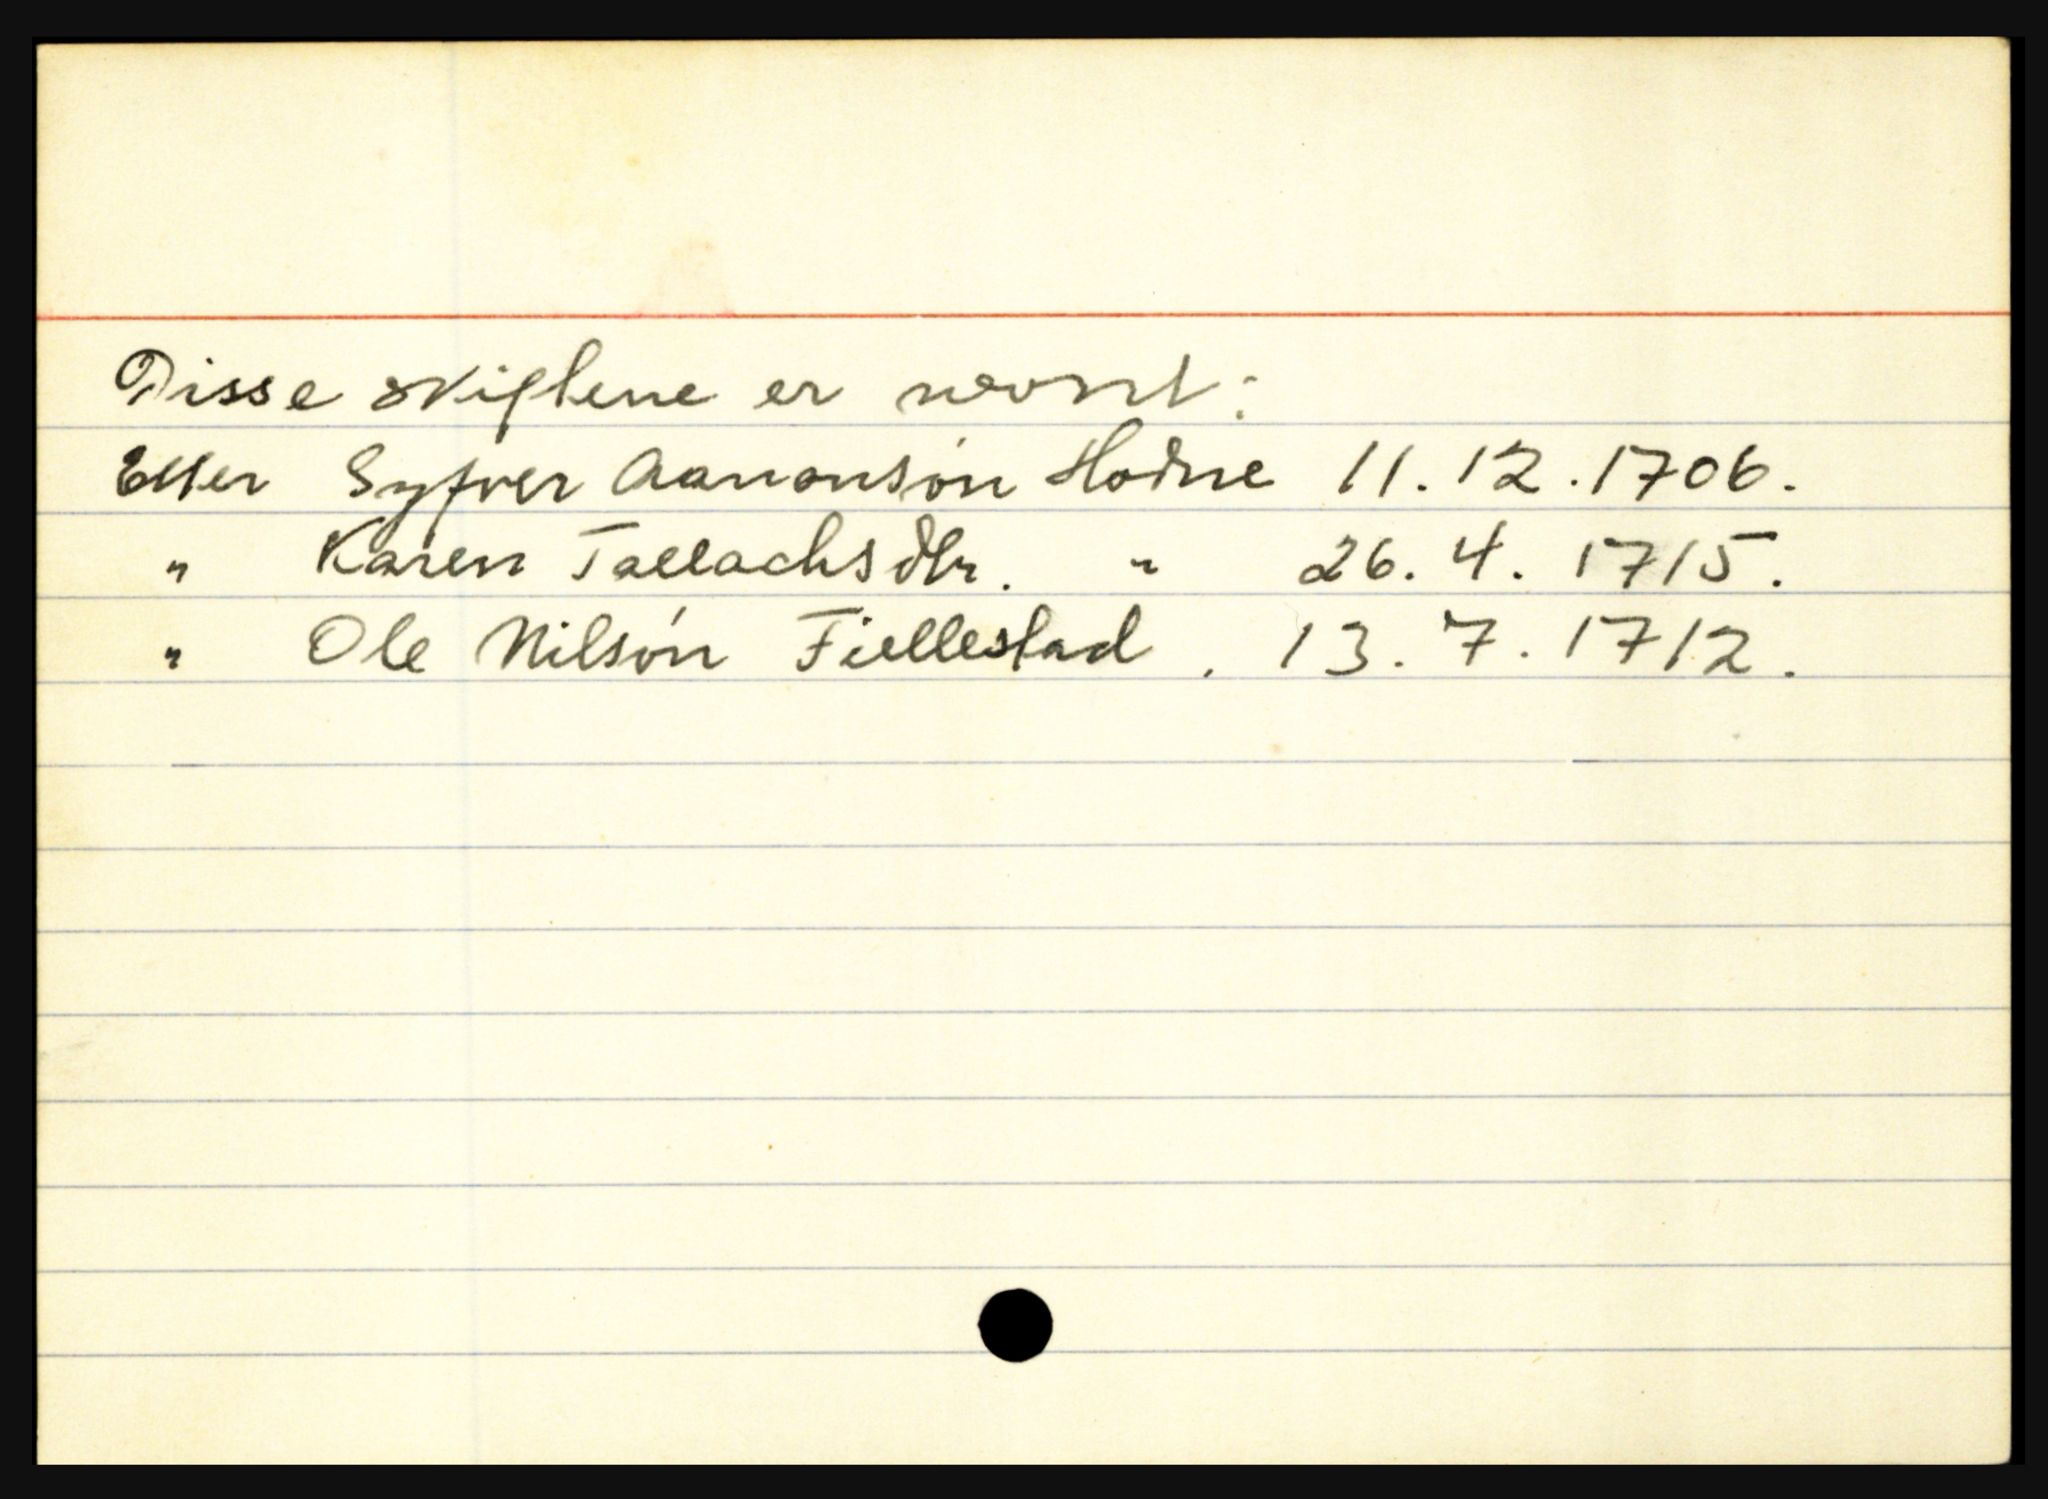 Disse skiftene er
Etter Syfver Aanonsön Hodne 11.12.1706.
" Karen Tallachsdtr. " 26.4.1715.
" Ole Nilsön Fiellestad . 13.7.1712.